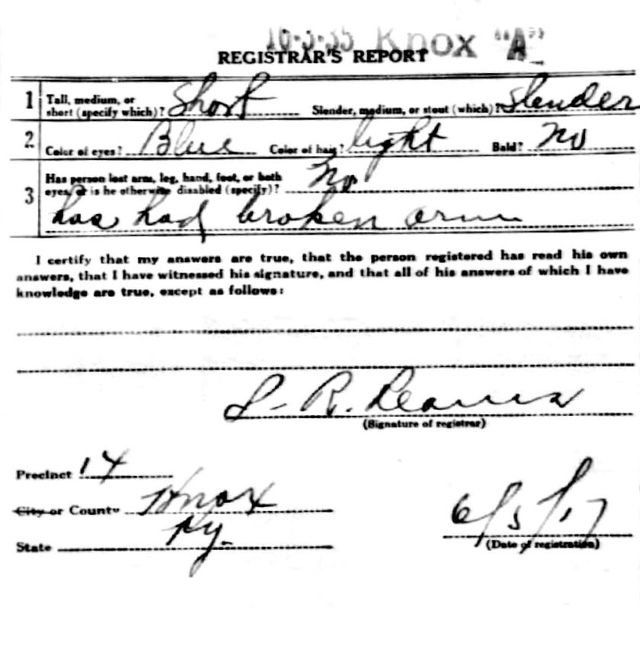 16-3-35 Knox "A"
REGISTRAR'S REPORT
1 Tall, medium, or short (specify which)? Short Slender, medium, or stout (which)? Slender
2 Color of eyes? Blue Color of hair? light Bald? No
3 Has person lost arm, leg, hand, foot, or both
eyes, or is he otherwise disabled (specify)? No
has had broken arm
I certify that my answers are true, that the person registered has read his own
answers, that I have witnessed his signature, and that all of his answers of which I have
knowledge are true, except as follows:
R.
(Signature of registrar)
Precinct 14
City or County Knox
State Ky.
6/5/17
(Date of registration)